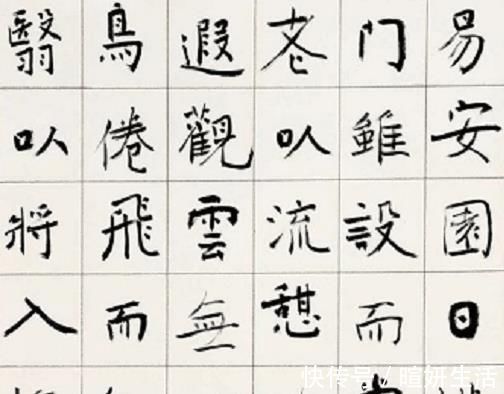 易安園日
门雖設而
老㕥流憩
遐觀雲無
鳥倦飛而
翳㕥將入
快传号 / 暄妍生活